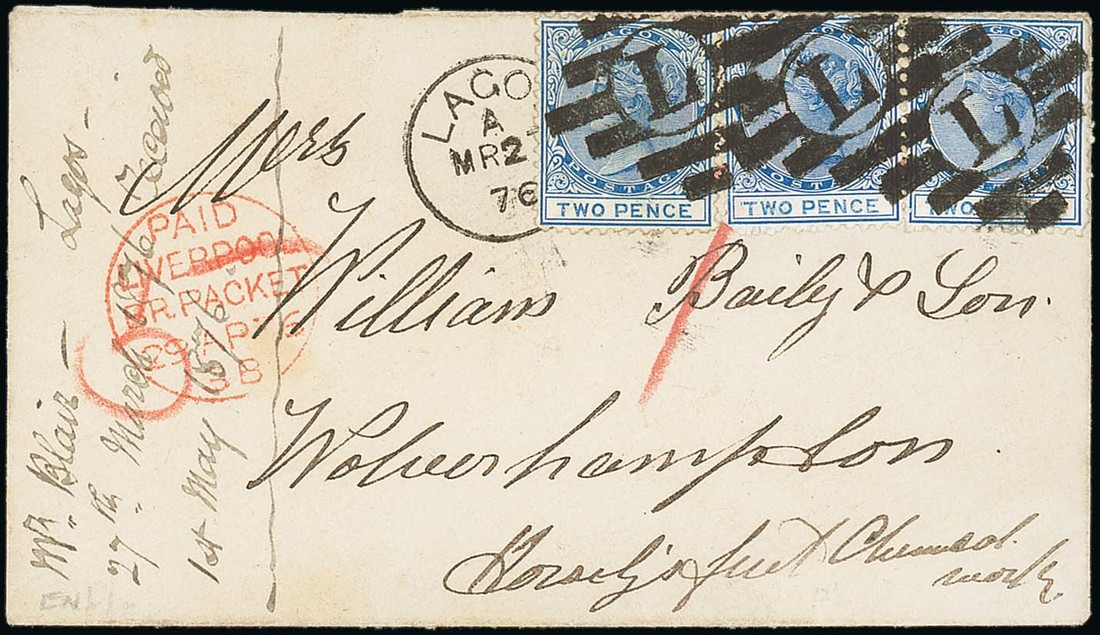 LAGOS
A
MR 2
76
LAGOS
L
POSTAGE
TWO PENCE
LAGOS
L
POSTAGE
TWO PENCE
LAGOS
L
TWO PENCE
Mess
William Baily & Son.
Wolverhampton
Chemical
works
PAID
LIVERPOOL
BR. PACKET
29 AP 76
3B
6
1
Wr. Blair — Lagos —
27th March 1876 Received
1st May 1876